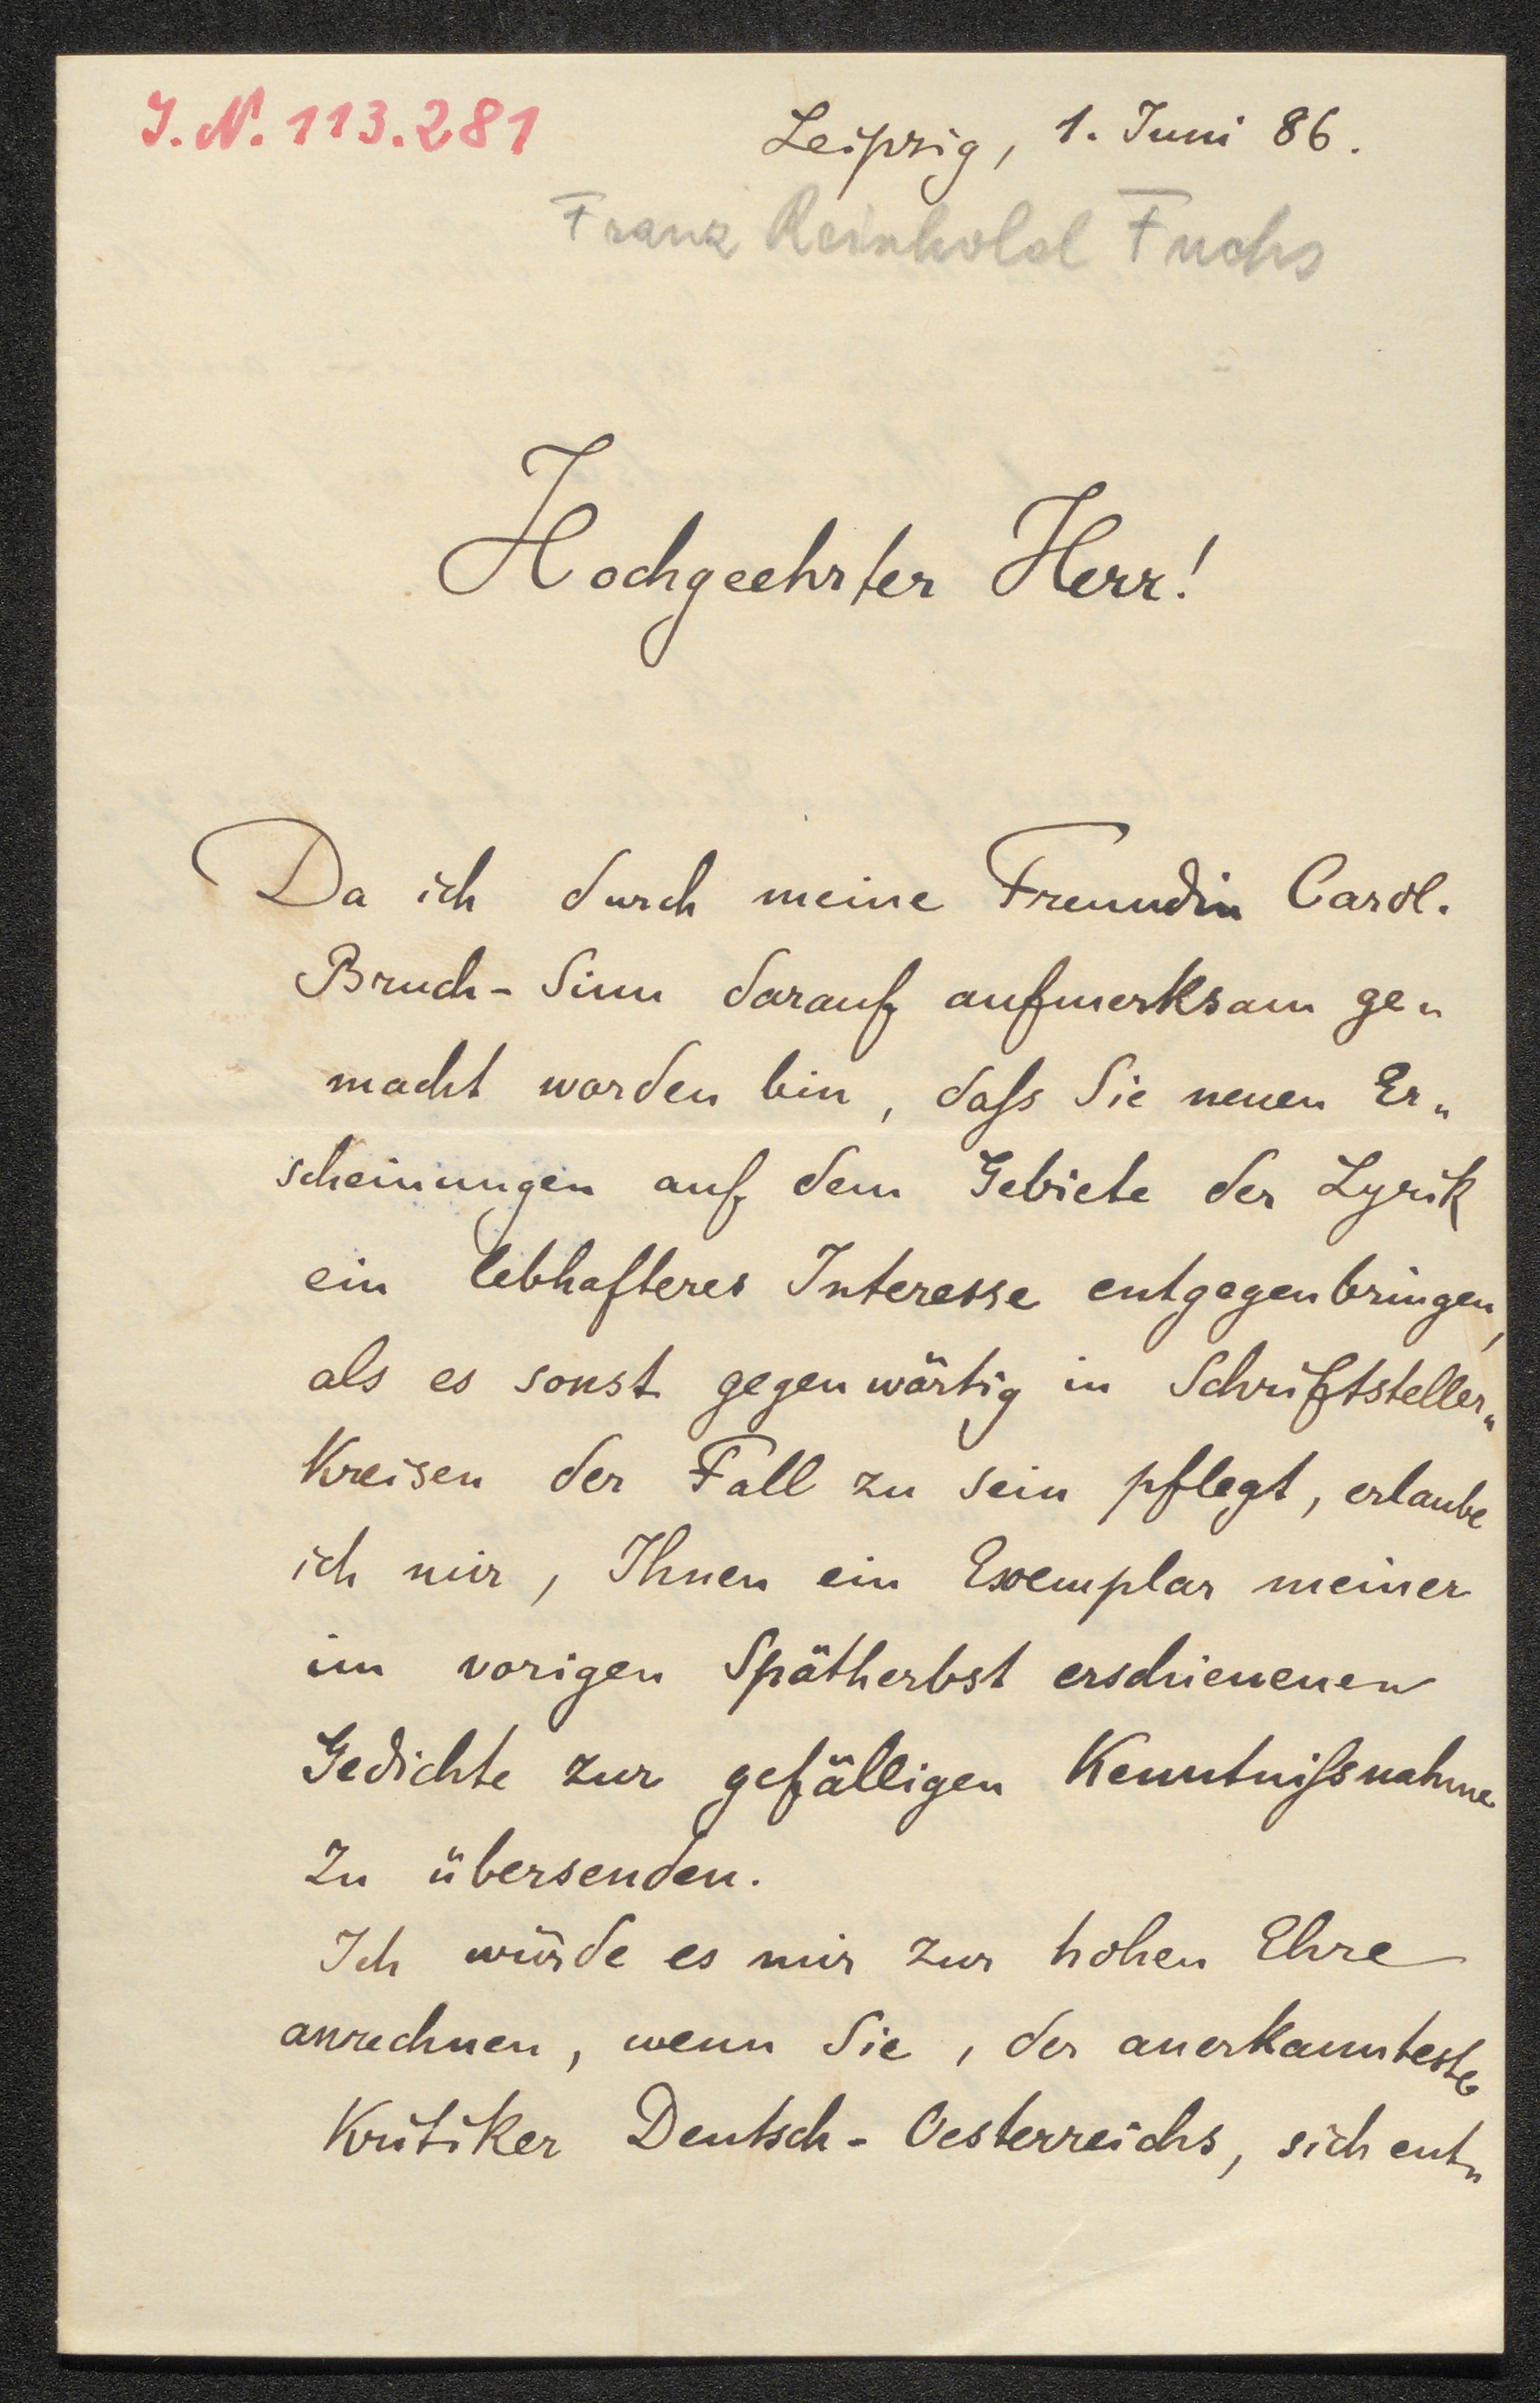 J. N. 113.281
Leipzig, 1. Juni 86.
Franz Reinhold Fuchs
Hochgeehrter Herr!
Da ich durch meine Freundin Carol.
Bruch-Sinn darauf aufmerksam ge„
macht worden bin, daſs Sie neuen Er„
scheinungen auf dem Gebiete der Lyrik
ein lebhafteres Interesse entgegenbringen,
als es sonst gegenwärtig in Schriftsteller„
Kreisen der Fall zu sein pflegt, erlaube
ich mir, Ihnen ein Exemplar meiner
im vorigen Spätherbst erschienenen
Gedichte zur gefälligen Kenntniſsnahme
zu übersenden.
Ich würde es mir zur hohen Ehre
anrechnen, wenn Sie, der anerkannteste
Kritiker Deutsch-Oesterreichs, sich ent„